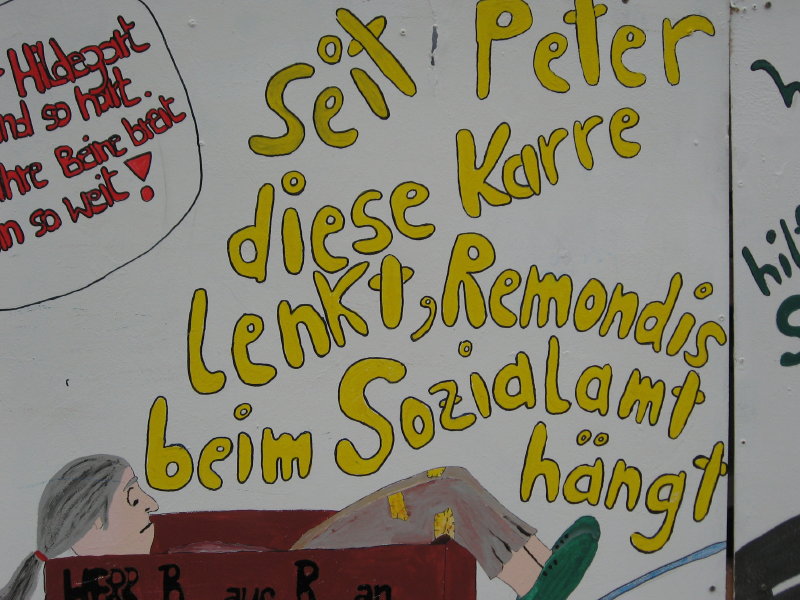 Hildegart
so hält.
ihre Beine breit
so weit!
Seit Peter
diese Karre
lenkt, Remondis
beim Sozialamt
hängt
HERR B. aus R. an